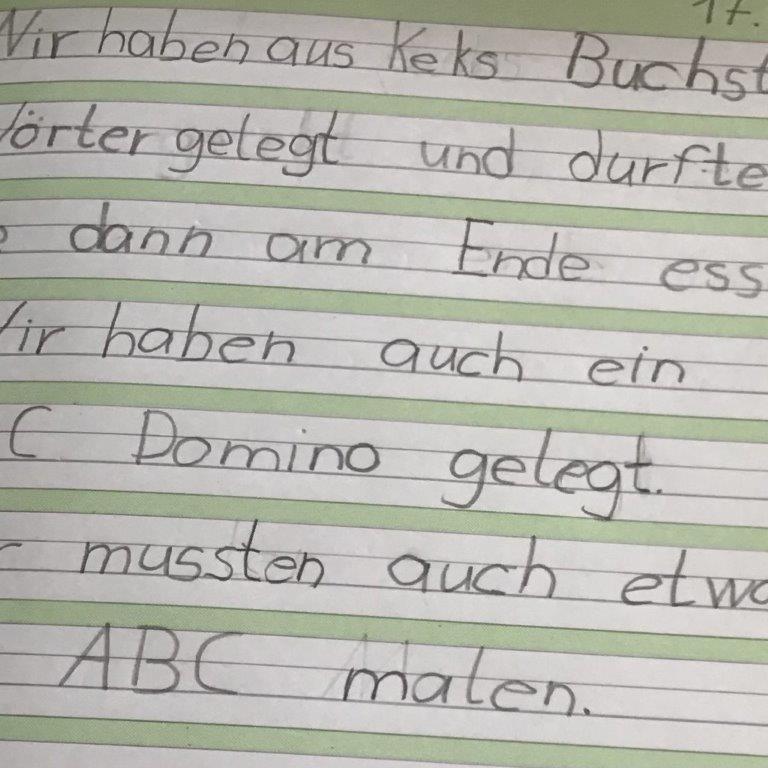 17.
Wir haben aus Keks Buchst
örter gelegt und durfte
dann am Ende ess
ir haben auch ein
C Domino gelegt.
mussten auch etwa
ABC malen.